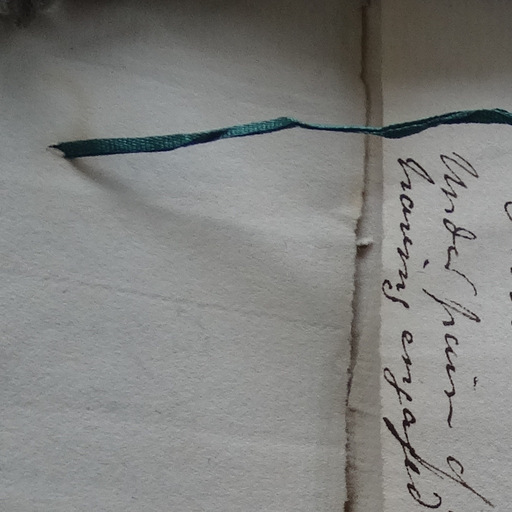 Under pain of
having engaged